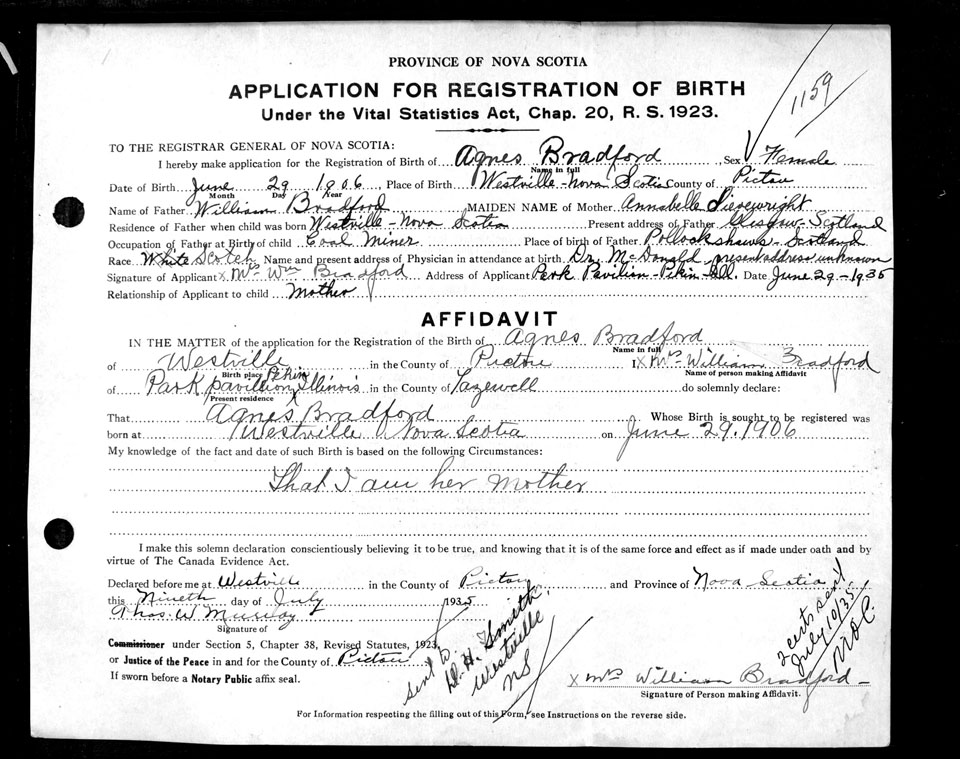 PROVINCE OF NOVA SCOTIA
1159
APPLICATION FOR REGISTRATION OF BIRTH
Under the Vital Statistics Act, Chap. 20, R. S. 1923.
TO THE REGISTRAR GENERAL OF NOVA SCOTIA:
I hereby make application for the Registration of Birth of Agnes Bradford Sex Female
Name in full
Date of Birth June 29 1906 Place of Birth Westville - Nova Scotia County of Pictou
Month Day Year
Name of Father William Bradford MAIDEN NAME of Mother Annabelle Sievewright
Residence of Father when child was born Westville - Nova Scotia Present address of Father Glasgow - Scotland
Occupation of Father at Birth of child Coal Miner Place of birth of Father Pollockshaws - Scotland
Race White Scotch Name and present address of Physician in attendance at birth Dr. McDonald, present address unknown
Signature of Applicant x Mrs Wm Bradford Address of Applicant Park Pavilion - Pekin - Ill. Date June 29 - 1935
Relationship of Applicant to child Mother
AFFIDAVIT
IN THE MATTER of the application for the Registration of the Birth of Agnes Bradford
Name in full
of Westville in the County of Pictou I x Mrs William Bradford
Birth place Name of person making Affidavit
of Park pavillion Pekin Illinois in the County of Tazewell do solemnly declare:
Present residence
That Agnes Bradford Whose Birth is sought to be registered was
born at Westville Nova Scotia on June 29. 1906
My knowledge of the fact and date of such Birth is based on the following Circumstances:
That I am her Mother
I make this solemn declaration conscientiously believing it to be true, and knowing that it is of the same force and effect as if made under oath and by
virtue of The Canada Evidence Act.
Declared before me at Westville in the County of Pictou and Province of Nova Scotia
this Nineth day of July 1935
Thos. W Murray
Signature of
Commissioner under Section 5, Chapter 38, Revised Statutes, 1923
or Justice of the Peace in and for the County of Pictou
If sworn before a Notary Public affix seal.
sent to
D. H. Smith,
Westville
NS
2 certs sent
July 10/35
x Mrs William Bradford
Signature of Person making Affidavit.
For Information respecting the filling out of this Form, see Instructions on the reverse side.